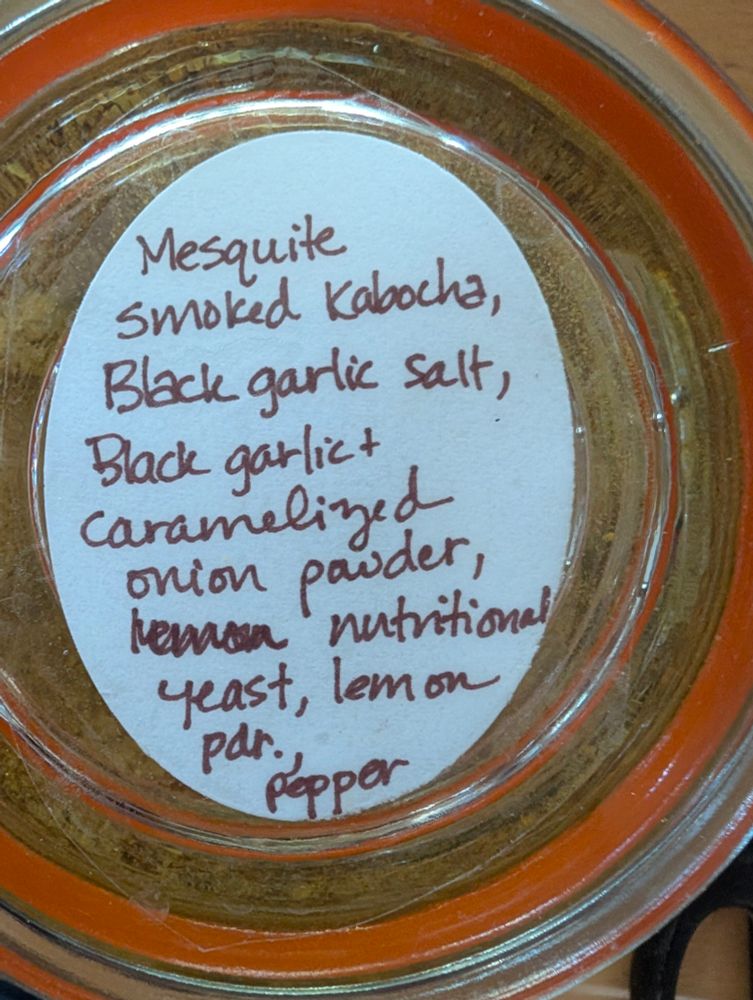 Mesquite
smoked Kabocha,
Black garlic salt,
Black garlic +
caramelized
onion powder,
nutritional
yeast, lemon
pdr.,
pepper